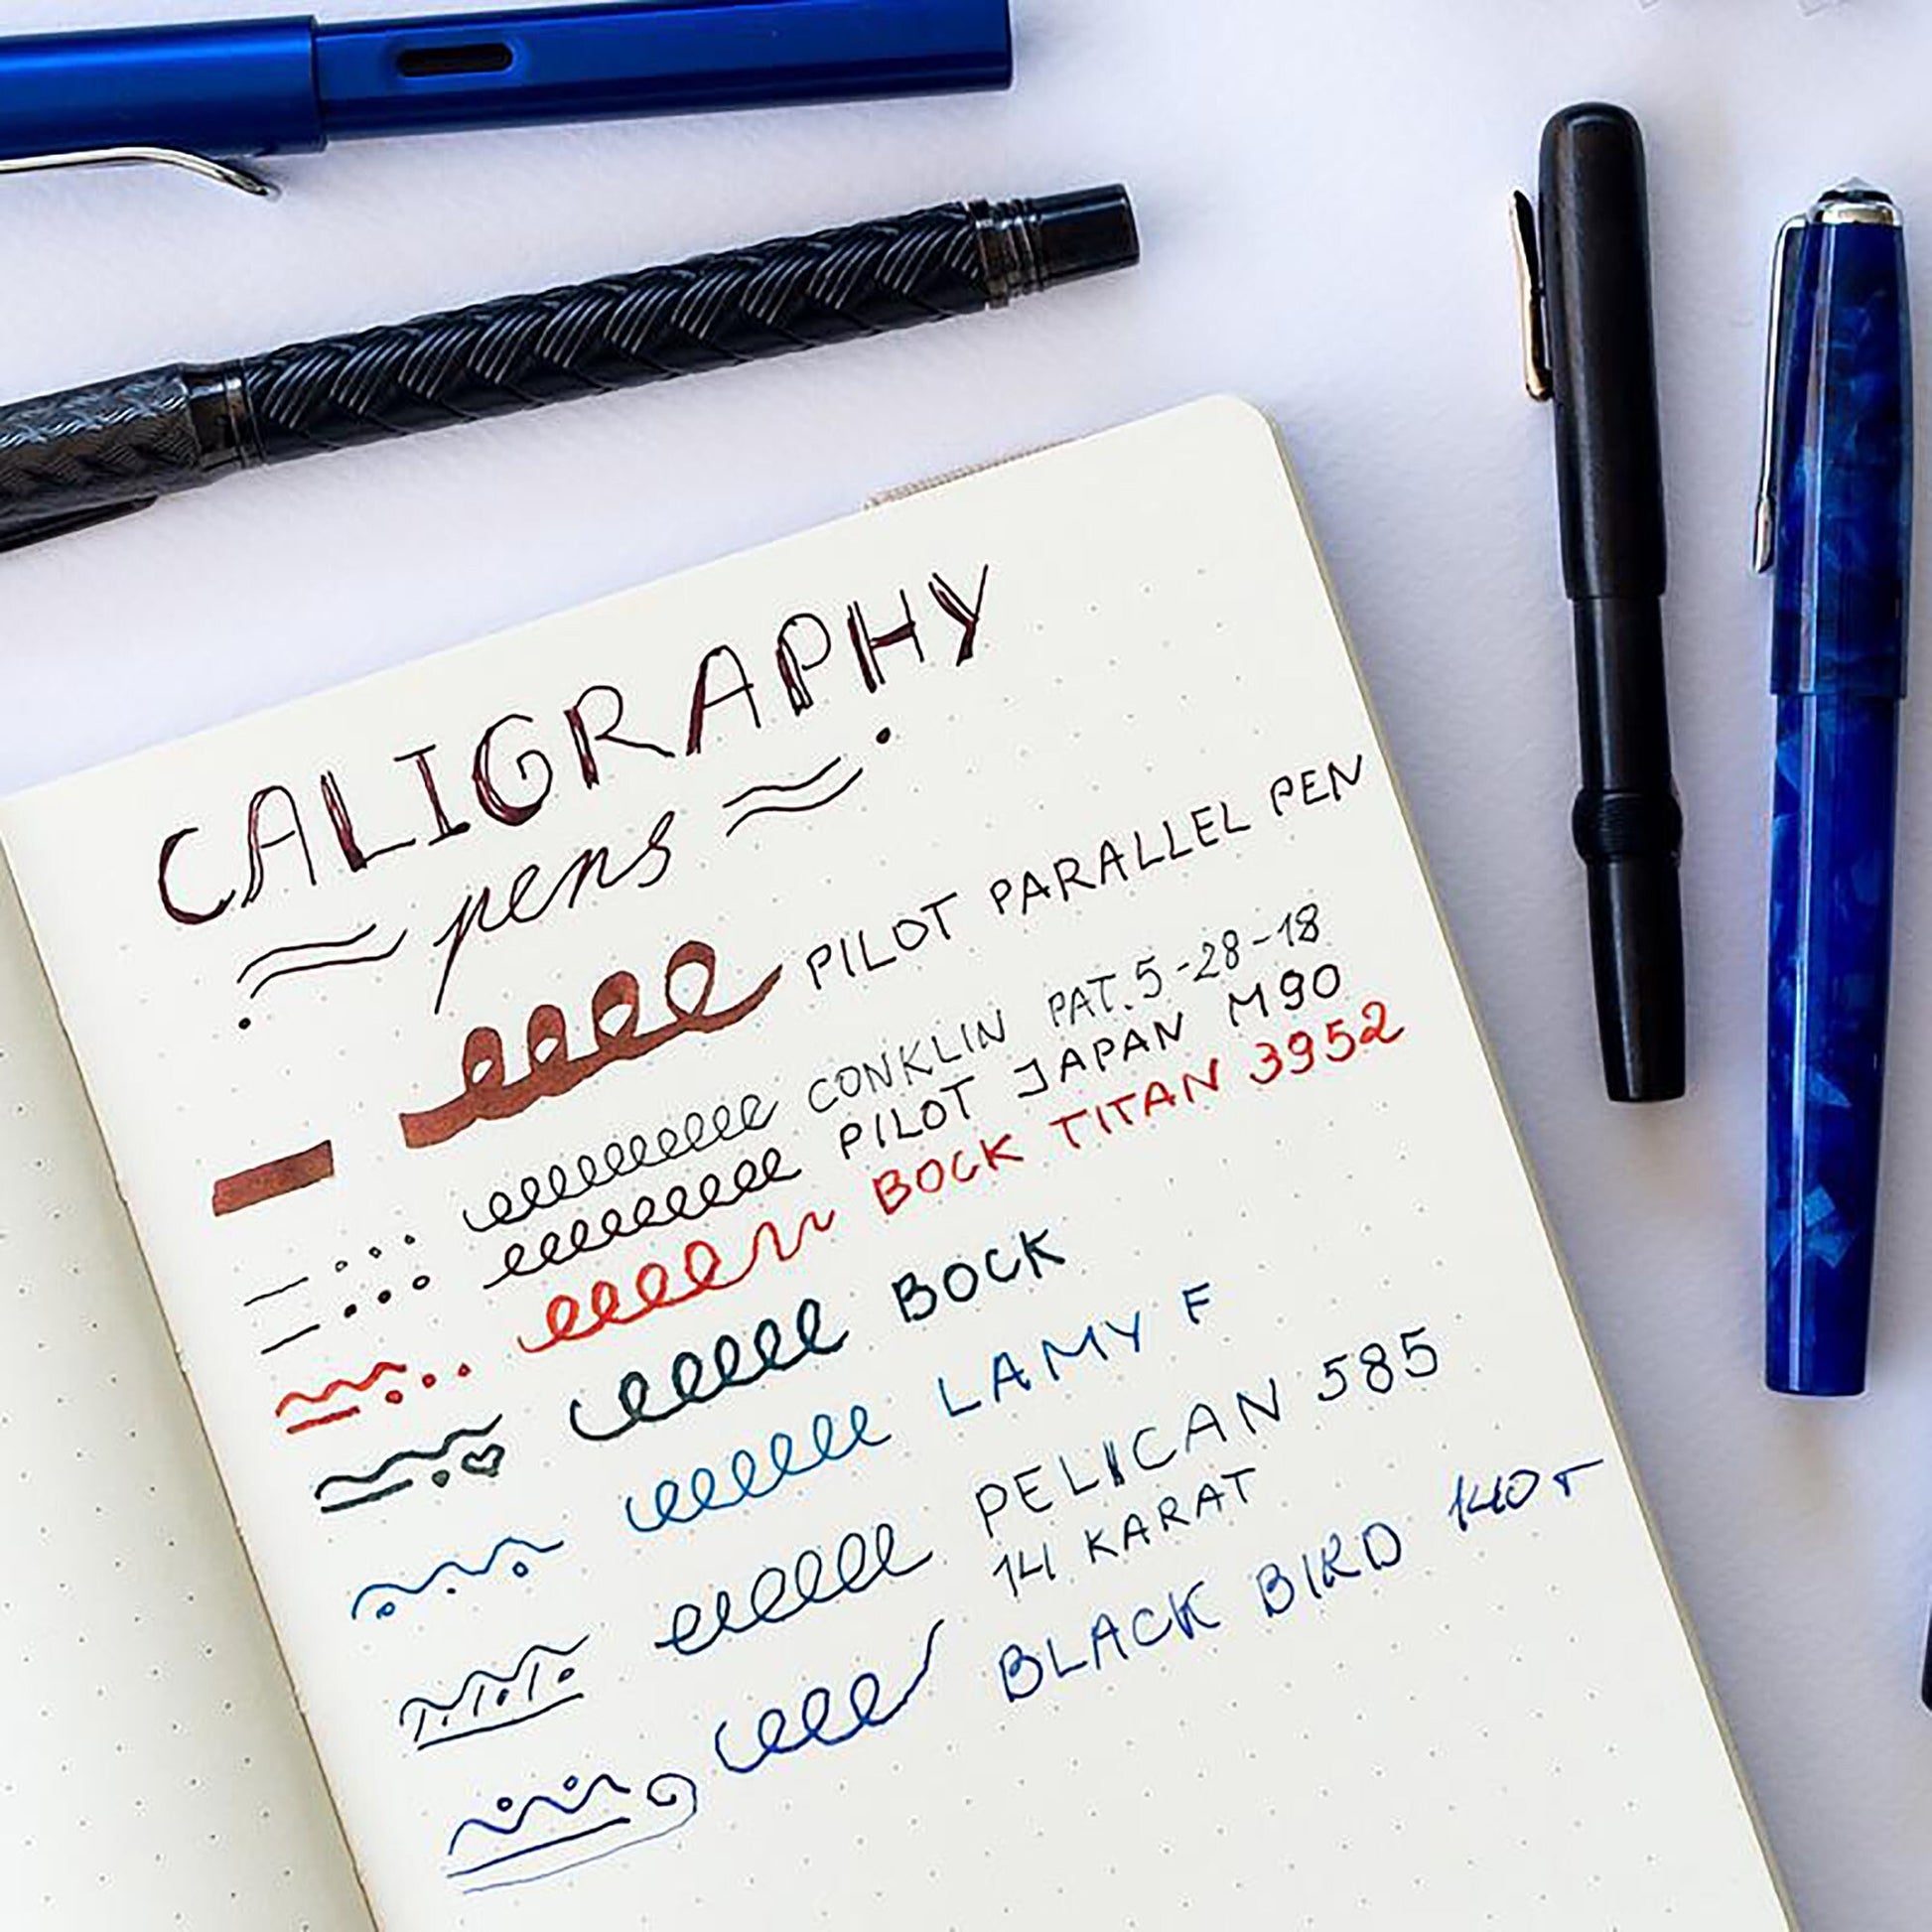 CALIGRAPHY
pens
PILOT PARALLEL PEN
CONKLIN PAT. 5-28-18
PILOT JAPAN M90
BOCK TITAN 3952
BOCK
LAMY F
PELICAN 585
14 KARAT
BLACK BIRD